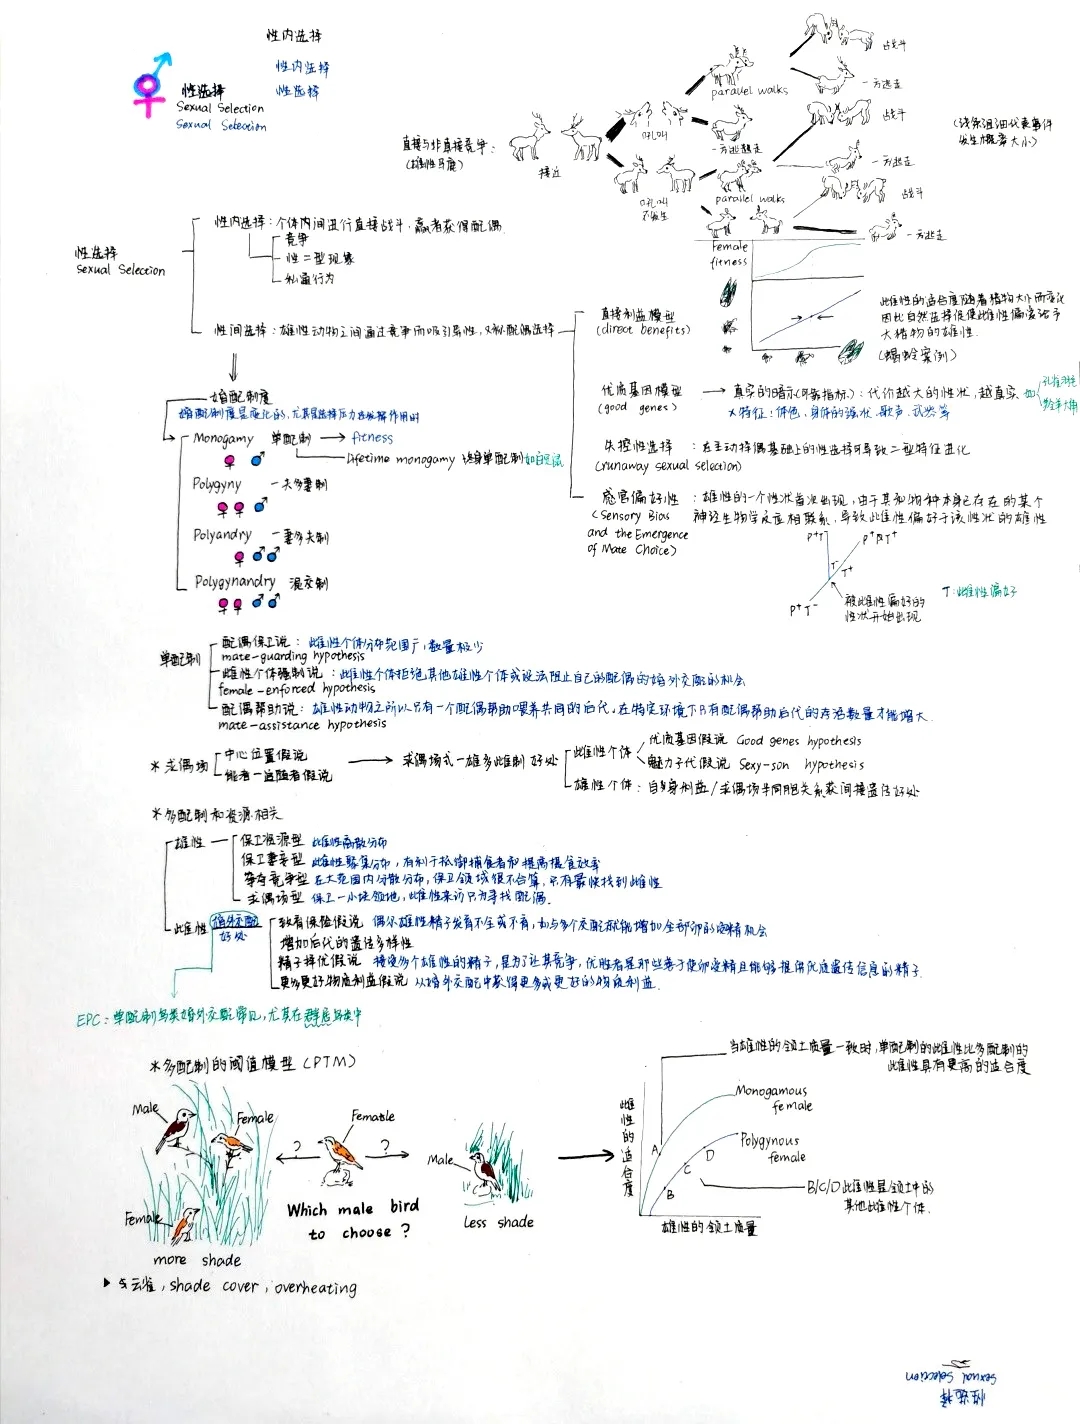 性内选择
性内选择
性选择
性选择
Sexual Selection
Sexual Selection
直接与非直接竞争：
(雄性马鹿)
接近
吼叫
吼叫
不发生
parallel walks
一方逃走
parallel walks
战斗
一方逃走
战斗
一方逃走
战斗
一方逃走
(线条粗细代表事件
发生概率大小)
性选择
Sexual Selection
性内选择：个体内间进行直接战斗，赢者获得配偶.
竞争
性二型现象
私通行为
性间选择：雄性动物之间通过竞争而吸引异性，又称配偶选择
直接利益模型
(direct benefits)
Female
fitness
此雌性的适合度随着猎物大小而变化
因此自然选择促使雌性偏爱给予
大猎物的雄性.
(蝎蛉案例)
优质基因模型
(good genes)
真实的暗示(可靠指标)：代价越大的性状，越真实
特征：体色，身体的强壮，歌声，武器等
失控性选择
(runaway sexual selection)
：在主动择偶基础上的性选择可导致二型特征进化
感官偏好性
(Sensory Bias
and the Emergence
of Mate Choice)
：雄性的一个性状首次出现，由于其和物种本身已存在的某个
神经生物学反应相联系，导致雌性偏好于该性状的雄性
P+T-
T-
T+
P+T-
被雌性偏好的
性状开始出现
T：雌性偏好
婚配制度
婚配制度是变化的，尤其是选择压力
作用时
Monogamy 单配制
fitness
Lifetime monogamy 终身单配制
Polygyny 一夫多妻制
Polyandry 一妻多夫制
Polygynandry 混交制
单配制
配偶保卫说：雌性个体分布范围广，数量极少
mate-guarding hypothesis
雌性个体强制说：雌性个体拒绝其他雄性个体或设法阻止自己的配偶的婚外交配的机会
female-enforced hypothesis
配偶帮助说：雄性动物之所以只有一个配偶帮助喂养共同的后代，在特定环境下只有配偶帮助后代的存活数量才能增大.
mate-assistance hypothesis
* 求偶场
中心位置假说
能者一追随者假说
求偶场式一雄多雌制 好处
雌性个体
优质基因假说 Good genes hypothesis
魅力子代假说 Sexy-son hypothesis
雄性个体：自身利益/求偶场中同胞关系获间接遗传好处
* 多配制和资源相关
雄性
保卫资源型 雌性离散分布
保卫妻妾型 雌性聚集分布，有利于抵御捕食者和提高捕食效率
争夺竞争型 在大范围内分散分布，保卫领域很不合算，只有最快找到雌性
求偶场型 保卫一小块领地，雌性来访只为寻找配偶.
雌性
婚外交配
好处
教育保险假说 偶尔雄性精子发育不全或不育，如与多个交配就能增加全部卵的受精机会
增加后代的遗传多样性
精子择优假说 接受多个雄性的精子，是为了让其竞争，优胜者是那些善于使卵受精且能够提供优质遗传信息的精子.
更多更好物质利益假说 从婚外交配中获得更多或更好的物质利益.
EPC：单配制鸟类婚外交配常见，尤其在群居鸟类中
* 多配制的阈值模型 (PTM)
Male
Female
Female
more shade
Femable
?
?
Which male bird
to choose ?
Male
Less shade
▶ 与云雀, shade cover, overheating
当雄性的领土质量一致时，单配制的雌性比多配制的
雌性具有更高的适合度
雌性的适合度
Monogamous
female
Polygynous
female
A
B
C
D
B/C/D 此雌性是领土中的
其他雌性个体.
雄性的领土质量
性选择
Sexual Selection